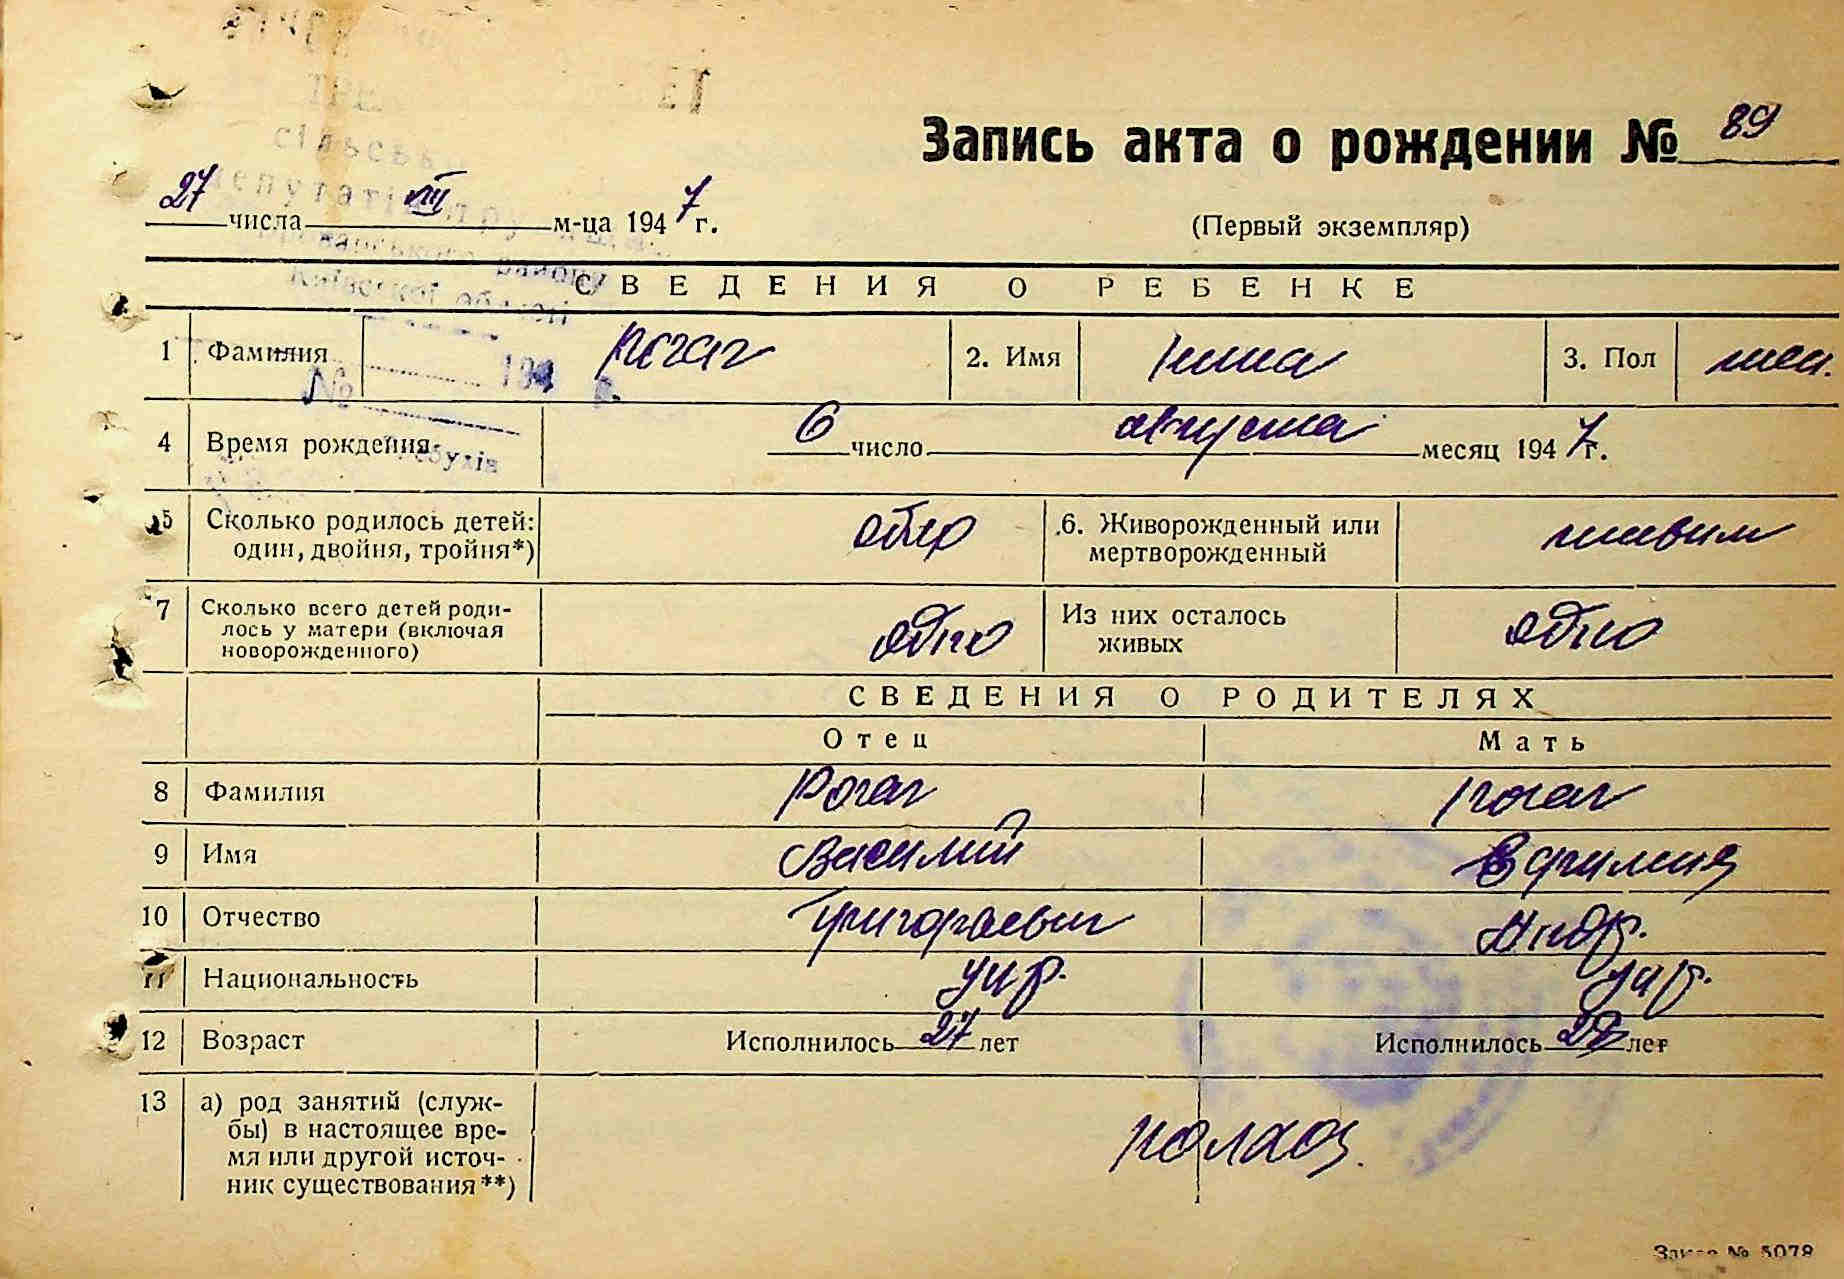 Запись акта о рождении № 89
27 числа VIII м-ца 1947 г.
(Первый экземпляр)
сільсько
депутатів тру
району
Київської області
194 р.
№
СВЕДЕНИЯ О РЕБЕНКЕ
1 Фамилия Рогач 2. Имя Нина 3. Пол жен.
4 Время рождения 6 число августа месяц 1947 г.
5 Сколько родилось детей: один, двойня, тройня*) одно 6. Живорожденный или мертворожденный живым
7 Сколько всего детей родилось у матери (включая новорожденного) одно Из них осталось живых одно
СВЕДЕНИЯ О РОДИТЕЛЯХ
Отец Мать
8 Фамилия Рогач Рогач
9 Имя Василий
10 Отчество Григорьевич Андр.
11 Национальность укр. укр.
12 Возраст Исполнилось 27 лет Исполнилось лет
13 а) род занятий (службы) в настоящее время или другой источник существования**) колхоз.
Заказ № 5078